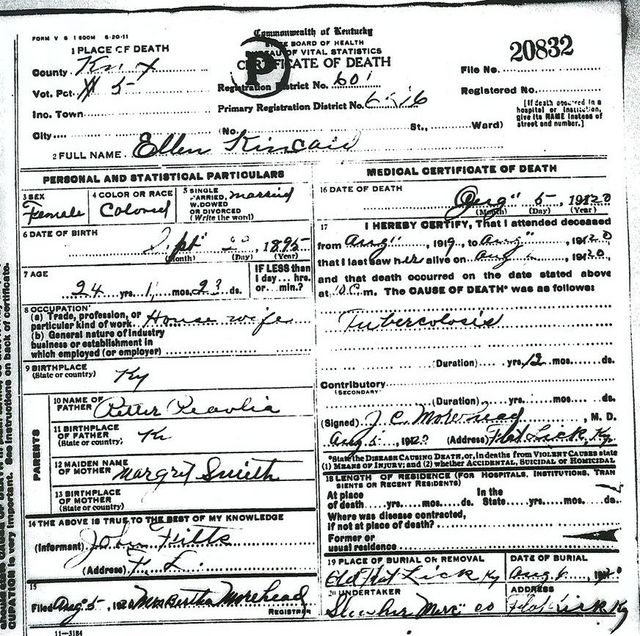 FORM V S 1 500M 6-20-11
Commonwealth of Kentucky
STATE BOARD OF HEALTH
BUREAU OF VITAL STATISTICS
CERTIFICATE OF DEATH
P
20832
File No.
1 PLACE OF DEATH
County Knox
Registration District No. 601
Vot. Pct. 5
Registered No.
Primary Registration District No. 6516
Inc. Town
[If death occurred in a hospital or institution, give its NAME instead of street and number.]
City (No. St., Ward)
2 FULL NAME Ellen Kincaid
PERSONAL AND STATISTICAL PARTICULARS
3 SEX
Female
4 COLOR OR RACE
Colored
5 SINGLE
MARRIED,
WIDOWED
OR DIVORCED
(Write the word)
married
6 DATE OF BIRTH
Sept 1895
(Month) (Day) (Year)
7 AGE
24 yrs. 1 mos. 23 ds.
IF LESS than
1 day... hrs.
or... min.?
8 OCCUPATION
(a) Trade, profession, or
particular kind of work House wife
(b) General nature of industry
business or establishment in
which employed (or employer)
9 BIRTHPLACE
(State or country)
Ky
PARENTS
10 NAME OF
FATHER
11 BIRTHPLACE
OF FATHER
(State or country)
Ky
12 MAIDEN NAME
OF MOTHER Margrit Smith
13 BIRTHPLACE
OF MOTHER
(State or country)
14 THE ABOVE IS TRUE TO THE BEST OF MY KNOWLEDGE
(Informant) John
(Address) F. L.
15
Filed Aug 5, 1920 Mrs Bertha Morehead
REGISTRAR
11-3184
MEDICAL CERTIFICATE OF DEATH
16 DATE OF DEATH
Aug 5 1920
(Month) (Day) (Year)
17 I HEREBY CERTIFY, That I attended deceased
from Aug, 1919, to Aug, 1920
that I last saw her alive on Aug, 1920,
and that death occurred on the date stated above
at m. The CAUSE OF DEATH* was as follows:
Tubercolosis
(Duration) yrs. 12 mos. ds.
Contributory
(SECONDARY)
(Duration) yrs. mos. ds.
(Signed) J. C. Morehead, M. D.
Aug 5 1920 (Address) Flat Lick Ky
*State the DISEASE CAUSING DEATH, or, in deaths from VIOLENT CAUSES state
(1) MEANS OF INJURY; and (2) whether ACCIDENTAL, SUICIDAL OR HOMICIDAL
18 LENGTH OF RESIDENCE (FOR HOSPITALS, INSTITUTIONS, TRANSIENTS OR RECENT RESIDENTS)
At place
of death yrs. mos. ds.
In the
State yrs. mos. ds.
Where was disease contracted,
if not at place of death?
Former or
usual residence
19 PLACE OF BURIAL OR REMOVAL
Flat Lick Ky
DATE OF BURIAL
Aug 6 1920
20 UNDERTAKER
ADDRESS
Flat Lick Ky
CUPATION is very important. See instructions on back of certificate.